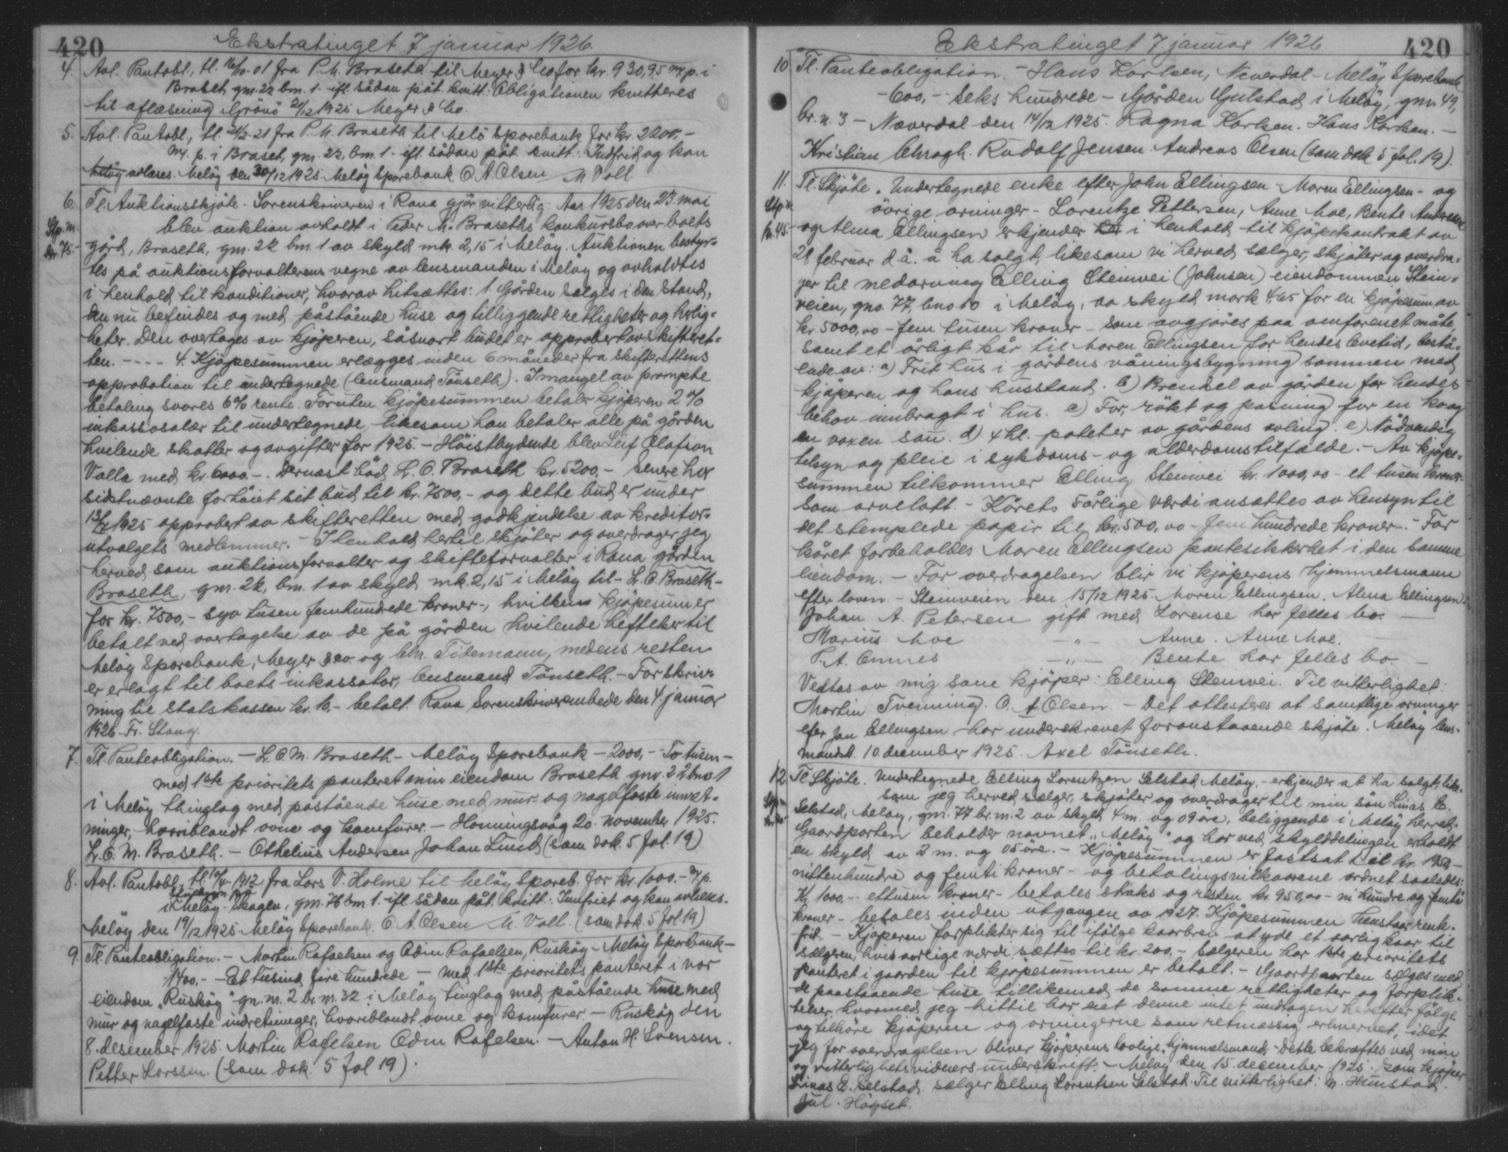 420
Ekstratinget 7 januar 1926
4. Avl. Pantobl. tl. 16/10-01 fra P. M. Braseth til Meyer & Co for kr. 930,95 m. p. i
Braset, gm. 22 bm. 1 - ifl. sådan påt. kvitt: Obligationen kvitteres
til aflæsning Grönö 21/12 1925 Meyer & Co.
5. Avl. Pantobl. tl. 21 fra P. M. Braseth til Melö Sparebank for kr. 2200,-
m. p. i Braset, gm. 22, bm. 1 - ifl. sådan påt. kvitt: Indfriet og kan
avlæses. Melöy den 30/12 1925 Melöy Sparebank O. A. Olsen M Voll
6. Tl. Auktionsskjöte. Sorenskriveren i Rana gjör vitterlig: Aar 1925 den 23 mai
blev auktion avholdt i Peder M. Braseths konkursbo over boets
gård, Braseth, gm. 22 bm. 1 av skyld mk. 2,15 i Melöy. Auktionen besty-
tes på auktionsforvalterens vegne av lensmanden i Melöy og avholdtes
i henhold til konditioner, hvorav hitsættes: 1. Gården sælges i den stand,
den nu befindes og med påstående huse og tilliggende rettigheter og herlig-
heter. Den overtages av kjöperen, såsnart budet er approbert av skifteret-
ten. - - - - 4. Kjöpesummen erlægges inden 6 måneder fra skifterettens
approbation til undertegnede (lensmand Tönseth). I mangel av prompte
betaling svares 6% rente. Foruten kjöpesummen betaler kjöperen 2%
inkassosalær til undertegnede, likesom han betaler alle på gården
hvilende skatter og avgifter for 1925. - Höistbydende blev Leif Olafson
Valla med kr. 6000,-. Dernæst böd L. C. Braseth kr. 5200,- Senere har
sidstnævnte forhöiet sit bud til kr. 7500,- og dette bud er under
1925 approbert av skifteretten med godkjendelse av kreditor-
utvalgets medlemmer. - I henhold hertil skjöter og overdrager jeg
herved som auktionsforvalter og skifteforvalter i Rana gården
Braseth, gm. 22, bm. 1 av skyld mk. 2,15 i Melöy til - L. C. Braseth -
for kr. 7500,- syv tusen femhundrede kroner -, hvilken kjöpesum er
betalt ved overtagelse av de på gården hvilende heftelser til
Melöy Sparebank, Meyer & co og Chr. Tidemann, medens resten
er erlagt til boets inkassator, lensmand Tönseth. - For skriv-
ning til statskassen kr. 16,- betalt. Rana Sorenskriverembede den 4 januar
1926. Fr. Stang.
7. Tl. Panteobligation. - L. C. M. Braseth - Melöy Sparebank - 2000,- To tusen -
med 1ste prioritets panteret i min eiendom Braseth gnr. 22 bno 1
i Melöy thinglag med påstående huse med mur og nagelfaste innret-
ninger, hvoriblandt ovne og komfurer. - Honningsvåg 20. november 1925.
L. C. M. Braseth. - Othelius Andersen Johan Lund (som dok. 5 fol. 19)
8. Avl. Pantobl. tl. 1912 fra Lars P. Holme til Melöy Spareb. for kr. 1000.- m. p.
i Melöy gm. 78 bm. 1. ifl. sådan påt. kvitt: Innfriet og kan avlæses.
Melöy den 19/12 1925 Melöy Sparebank. O A Olsen M. Voll (som dok. 5 fol 19)
9. Tl. Panteobligation. - Martin Rafaelsen og Odin Rafaelsen, Ruskøy - Melöy Sparebank -
1400,- Et tusind fire hundrede - med 1ste prioritets panteret i vor
eiendom "Ruskøy" gn. m. 2 br. m. 32 i Melöy tinglag med påstående huse med
mur og nagelfaste indretninger, hvoriblandt ovne og komfurer - Ruskøy den
8. desember 1925. Martin Rafelsen Odin Rafelsen. - Anton H. Svensen.
Petter Larssen. (som dok. 5 fol 19).
Ekstratinget 7 januar 1926
420
10. Tl. Panteobligation. - Hans Karlsen, Neverdal - Melöy Sparebank
- 600,- Seks hundrede - Gården Gjulstad i Melöy, gnr. 49,
br. n. 3 - Neverdal den 14/12 1925. Ragna Karlsen. Hans Karlsen. -
Kristian Rudolf Jensen Andreas Olsen (som dok 5 fol. 19).
11. Tl. Skjöte. Undertegnede enke efter John Ellingsen - Maren Ellingsen - og
övrige arvinger - Lorentze Pettersen, Anne Moe, Bente Andersen
og Alma Ellingsen erkjender i henhold til kjöpekontrakt av
28 februar d. å. å ha solgt, likesom vi herved sælger, skjöter og overdra-
ger til medarving Elling Steinvei (Johnsen) eiendommen Stein-
veien, gno. 77, bno 10 i Melöy, av skyld mark 4,65 for en kjöpesum av
kr. 5000,00 - fem tusen kroner - som avgjöres paa omforenet måte
samt et årligt kår til Maren Ellingsen for hendes levetid, bestå-
ende av: a) Frit hus i gårdens våningsbygning sammen med
kjöperen og hans husstand. b) Brensel av gården for hendes
behov innbragt i hus. c) For, rökt og pasning for en ko og
en voxen sau. d) 4 hl. poteter av gårdens avling. e) Nödvendig
tilsyn og pleie i sykdoms- og alderdomstilfælde. - Av kjöpe-
summen tilkommer Elling Steinvei kr. 1000,00 - et tusen kroner
som arvelott. - Kårets 5 årlige værdi ansættes av hensyn til
det stemplede papir til kr. 500,00 - fem hundrede kroner. - For
kåret forbeholdes Maren Ellingsen pantesikkerhet i den samme
eiendom. - For overdragelsen blir vi kjöperens hjemmelsmann
efter loven. - Steinveien den 15/12 1925. Maren Ellingsen. Alma Ellingsen.
Johan A. Petersen gift med Lorense har felles bo. -
Marius Moe -"- Anne. Anne Moe. -
P. A. Ennes -"- Bente har felles bo -
Vedtas av mig som kjöper: Elling Steinvei. Til vitterlighet:
Martin Tvenning. O. A Olsen. - Det attesteres at samtlige arvinger
efter Jan Ellingsen har underskrevet foranstaaende skjöte. Melöy lens-
mandsk. 10 december 1925. Axel Tönseth.
12. Tl. Skjöte. Undertegnede Elling Lorentzen Selstad, Melöy, - erkjender at ha solgt, like-
som jeg herved sælger, skjöter og overdrager til min sön Linas E.
Selstad, Melöy, gm. 74 br. m. 2 av skyld 4 m. og 09 öre, beliggende i Melöy herred.
Gaardparten beholder navnet "Melöy" og har ved skylddelingen erholdt
en skyld av 2 m. og 05 öre. - Kjöpesummen er fastsat til kr. 1950 -
nittenhundre og femti kroner - og betalingsvilkaarene ordnet saaledes:
Kr 1000 - ettusen kroner - betales straks og resten kr. 950,00 - ni hundre og femti
kroner - betales inden utgangen av 1927. Kjöpesummen henstaar rente-
fri. - Kjöperen forplikter sig til ifölge kaarbrev at yde et aarlig kaar til
sælgeren, hvis aarlige værdi sættes til kr. 200,- Sælgeren har 1ste prioritets
panteret i gaarden til kjöpesummen er betalt. - Gaardparten sælges med
de paastaaende huse tillikemed de samme rettigheter og forplik-
telser, hvormed jeg hittil har eiet denne intet undtagen herefter fölge
og tilhöre kjöperen og arvingerne som retmæssig erhvervet, idet
jeg for overdragelsen bliver kjöperens lovlige hjemmelsmand. Dette bekræftes ved min
og vitterlighetsvidners underskrift. - Melöy den 15. december 1925. Som kjöper
Linas E. Selstad. sælger Elling Lorentsen Selstad. Til vitterlighet: N. Hunstad.
Jul. Höyset.